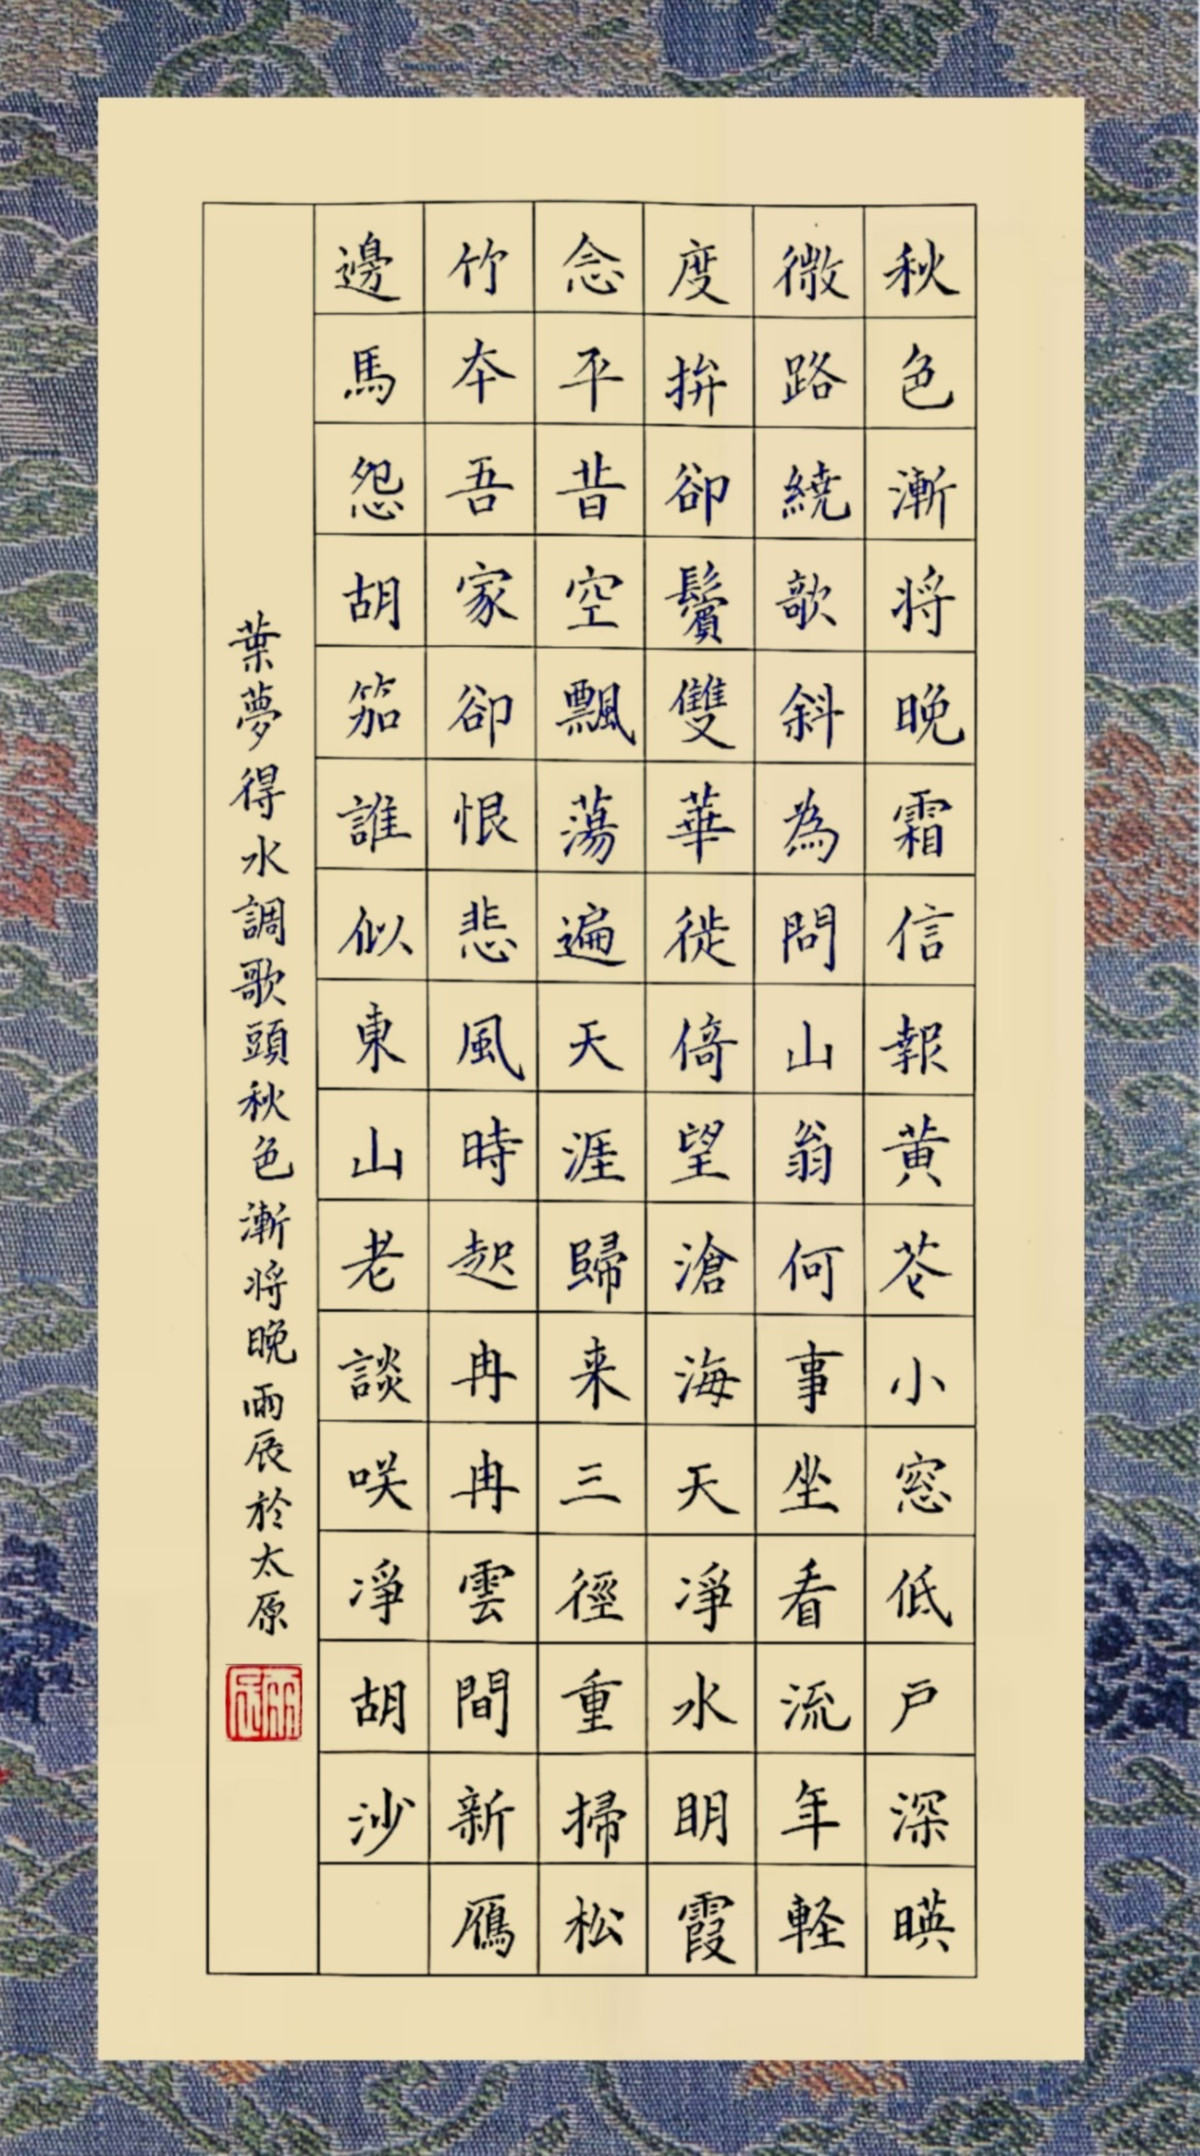 秋色漸将晚霜信報黄花小窓低戸深暎
微路繞欹斜為問山翁何事坐看流年軽
度拚卻鬢雙華徙倚望滄海天凈水明霞
念平昔空飄蕩遍天涯歸来三徑重掃松
竹夲吾家卻恨悲風時起冉冉雲間新鴈
邊馬怨胡笳誰似東山老談咲凈胡沙
葉夢得水調歌頭秋色漸将晚雨辰於太原
雨辰